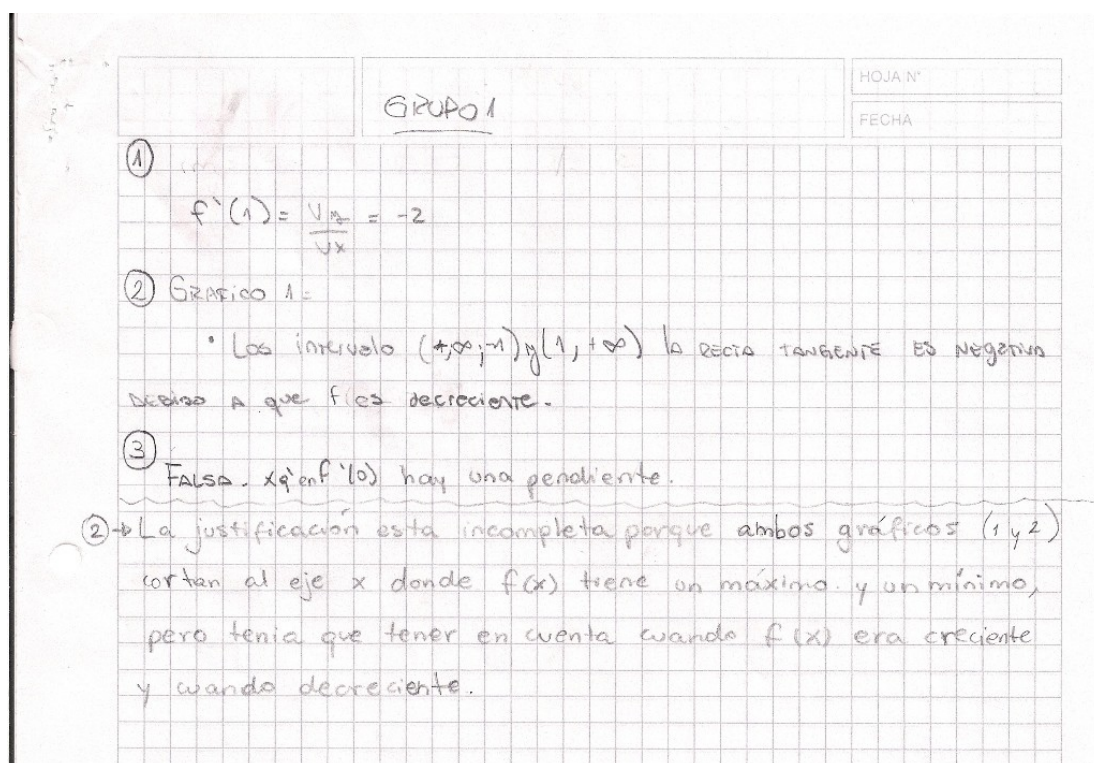 HOJA N°
GRUPO 1
FECHA
①
f`(1) = Vy/Vx = -2
② GRAFICO 1=
• Los intervalo (+,∞;-1) y (1, +∞) la RECTA TANGENTE ES NEGATIVA
DEBIDO A que f es decreciente.
③
FALSA. xq' en f`(0) hay una pendiente.
②→ La justificación esta incompleta porque ambos gráficos (1 y 2)
cortan al eje x donde f(x) tiene un máximo y un mínimo,
pero tenia que tener en cuenta cuando f(x) era creciente
y cuando decreciente.